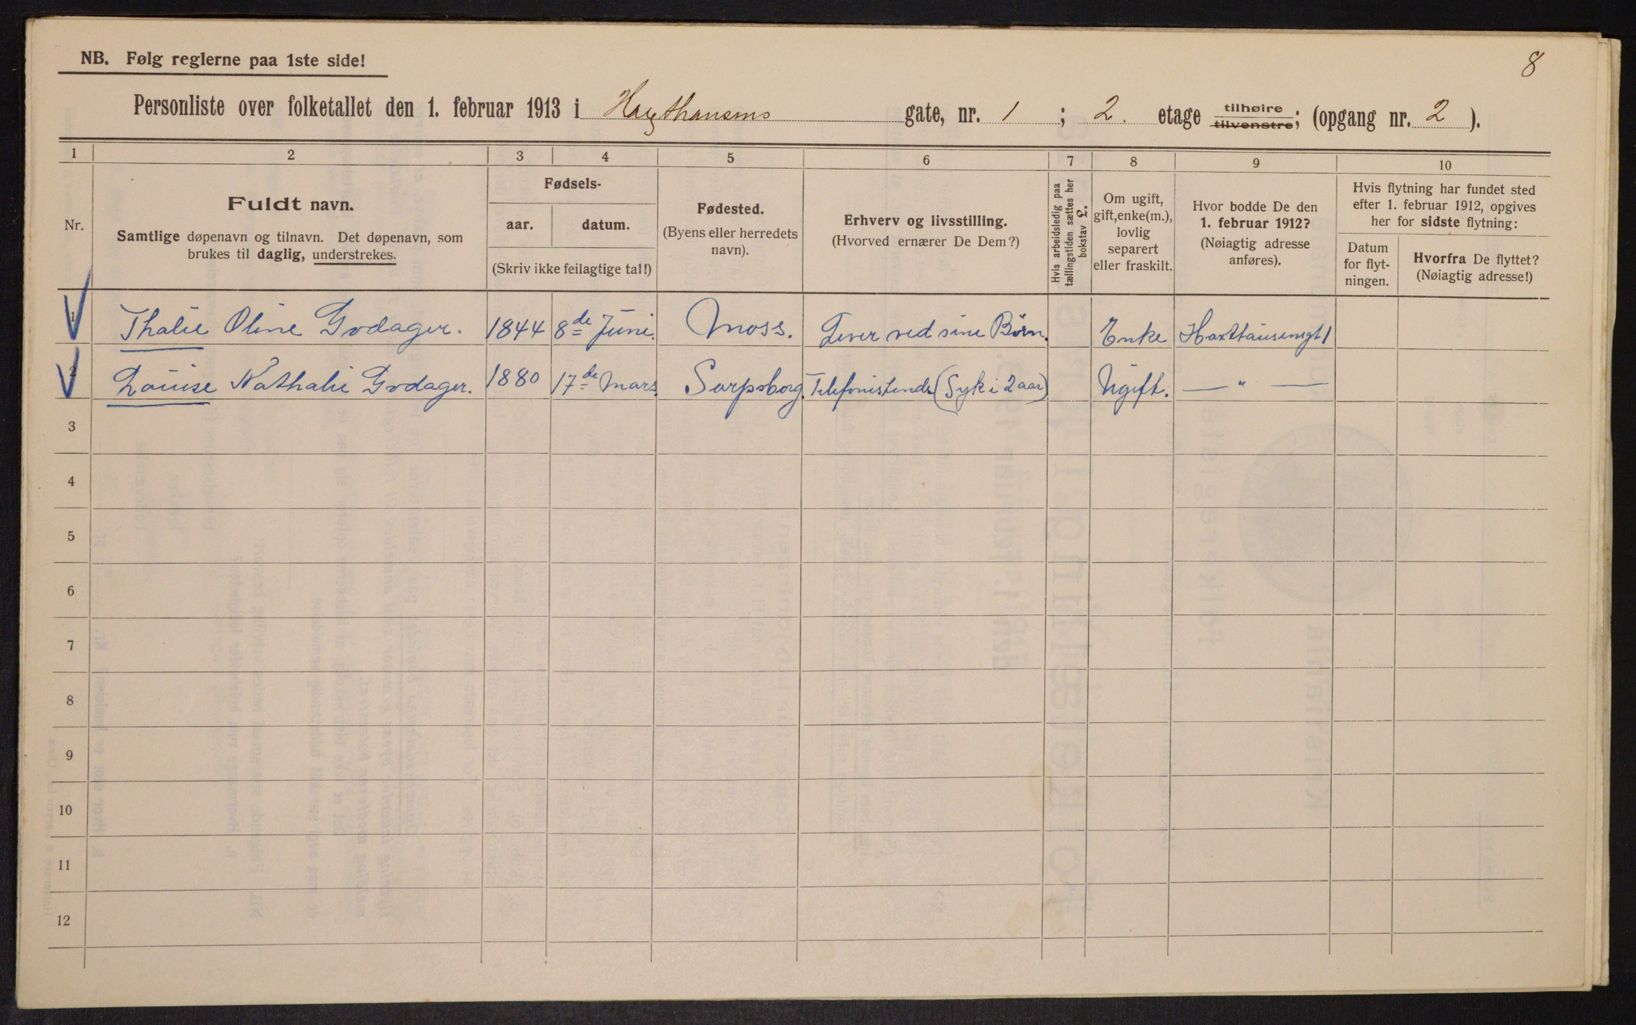 8
NB. Følg reglerne paa 1ste side!
Personliste over folketallet den 1. februar 1913 i Haxthausens gate, nr. 1 ; 2. etage tilhøire tilvenstre; (opgang nr. 2 ).
1 2 3 4 5 6 7 8 9 10
Nr.
Fuldt navn.
Samtlige døpenavn og tilnavn. Det døpenavn, som
brukes til daglig, understrekes.
Fødsels-
aar. datum.
(Skriv ikke feilagtige tal!)
Fødested.
(Byens eller herredets
navn).
Erhverv og livsstilling.
(Hvorved ernærer De Dem?)
Hvis arbeidsledig paa
tællingstiden sættes her
bokstav L.
Om ugift,
gift,enke(m.),
lovlig
separert
eller fraskilt.
Hvor bodde De den
1. februar 1912?
(Nøiagtig adresse
anføres).
Hvis flytning har fundet sted
efter 1. februar 1912, opgives
her for sidste flytning:
Datum
for flyt-
ningen.
Hvorfra De flyttet?
(Nøiagtig adresse!)
1 Thalie Oline Godager. 1844 8de Juni. Moss. Lever ved sine Børn. Enke Haxthausensgt 1
2 Louise Nathalie Godager. 1880 17de Mars. Sarpsborg. Telefonistinde (Syk i 2 aar) Ugift. — " —
3
4
5
6
7
8
9
10
11
12